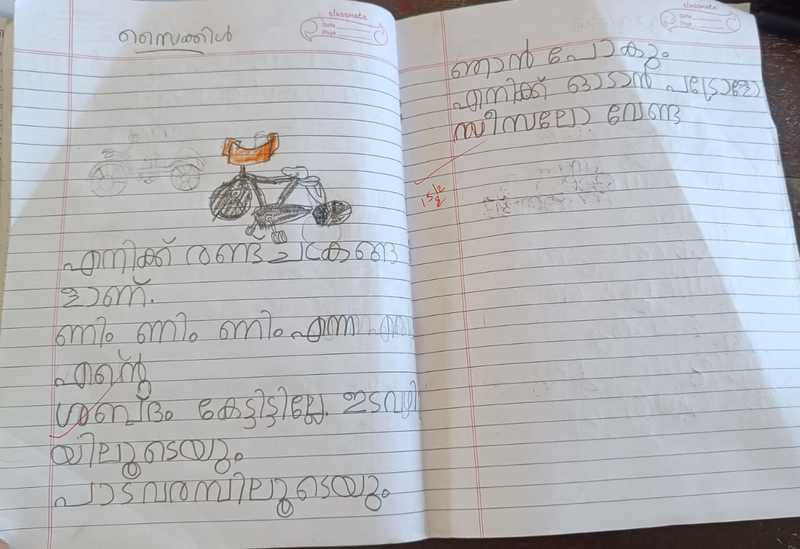 classmate
Date
Page
സൈക്കിൾ
എനിക്ക് രണ്ട് ചക്രങ്ങ
ളാണ്.
ണിം ണിം ണിം എന്ന
എന്റെ
ശബ്ദം കേട്ടിട്ടില്ലേ. ഇടവഴി
യിലൂടെയും
പാടവരമ്പിലൂടെയും
classmate
Date
Page
ഞാൻ പോകും
എനിക്ക് ഓടാൻ പട്രോളോ
ഡീസലോ വേണ്ട